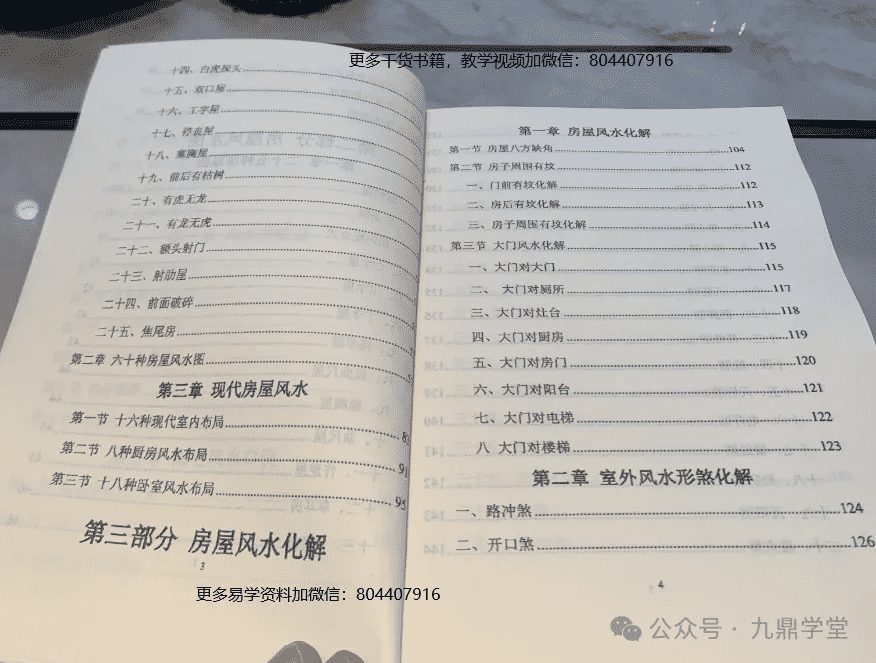 更多干货书籍，教学视频加微信：804407916
十四、白虎探头
十五、双口屋
十六、工字屋
十七、停丧屋
十八、塞胸屋
十九、前后有枯树
二十、有虎无龙
二十一、有龙无虎
二十二、额头射门
二十三、射肋屋
二十四、前面破碎
二十五、焦尾房
第二章 六十种房屋风水图
第三章 现代房屋风水
第一节 十六种现代室内布局 83
第二节 八种厨房风水布局 91
第三节 十八种卧室风水布局 95
第三部分 房屋风水化解
3
第一章 房屋风水化解
第一节 房屋八方缺角 104
第二节 房子周围有坟 112
一、门前有坟化解 112
二、房后有坟化解 113
三、房子周围有坟化解 114
第三节 大门风水化解 115
一、大门对大门 115
二、大门对厕所 117
三、大门对灶台 118
四、大门对厨房 119
五、大门对房门 120
六、大门对阳台 121
七、大门对电梯 122
八 大门对楼梯 123
第二章 室外风水形煞化解
一、路冲煞 124
二、开口煞 126
4
更多易学资料加微信：804407916
公众号·九鼎学堂